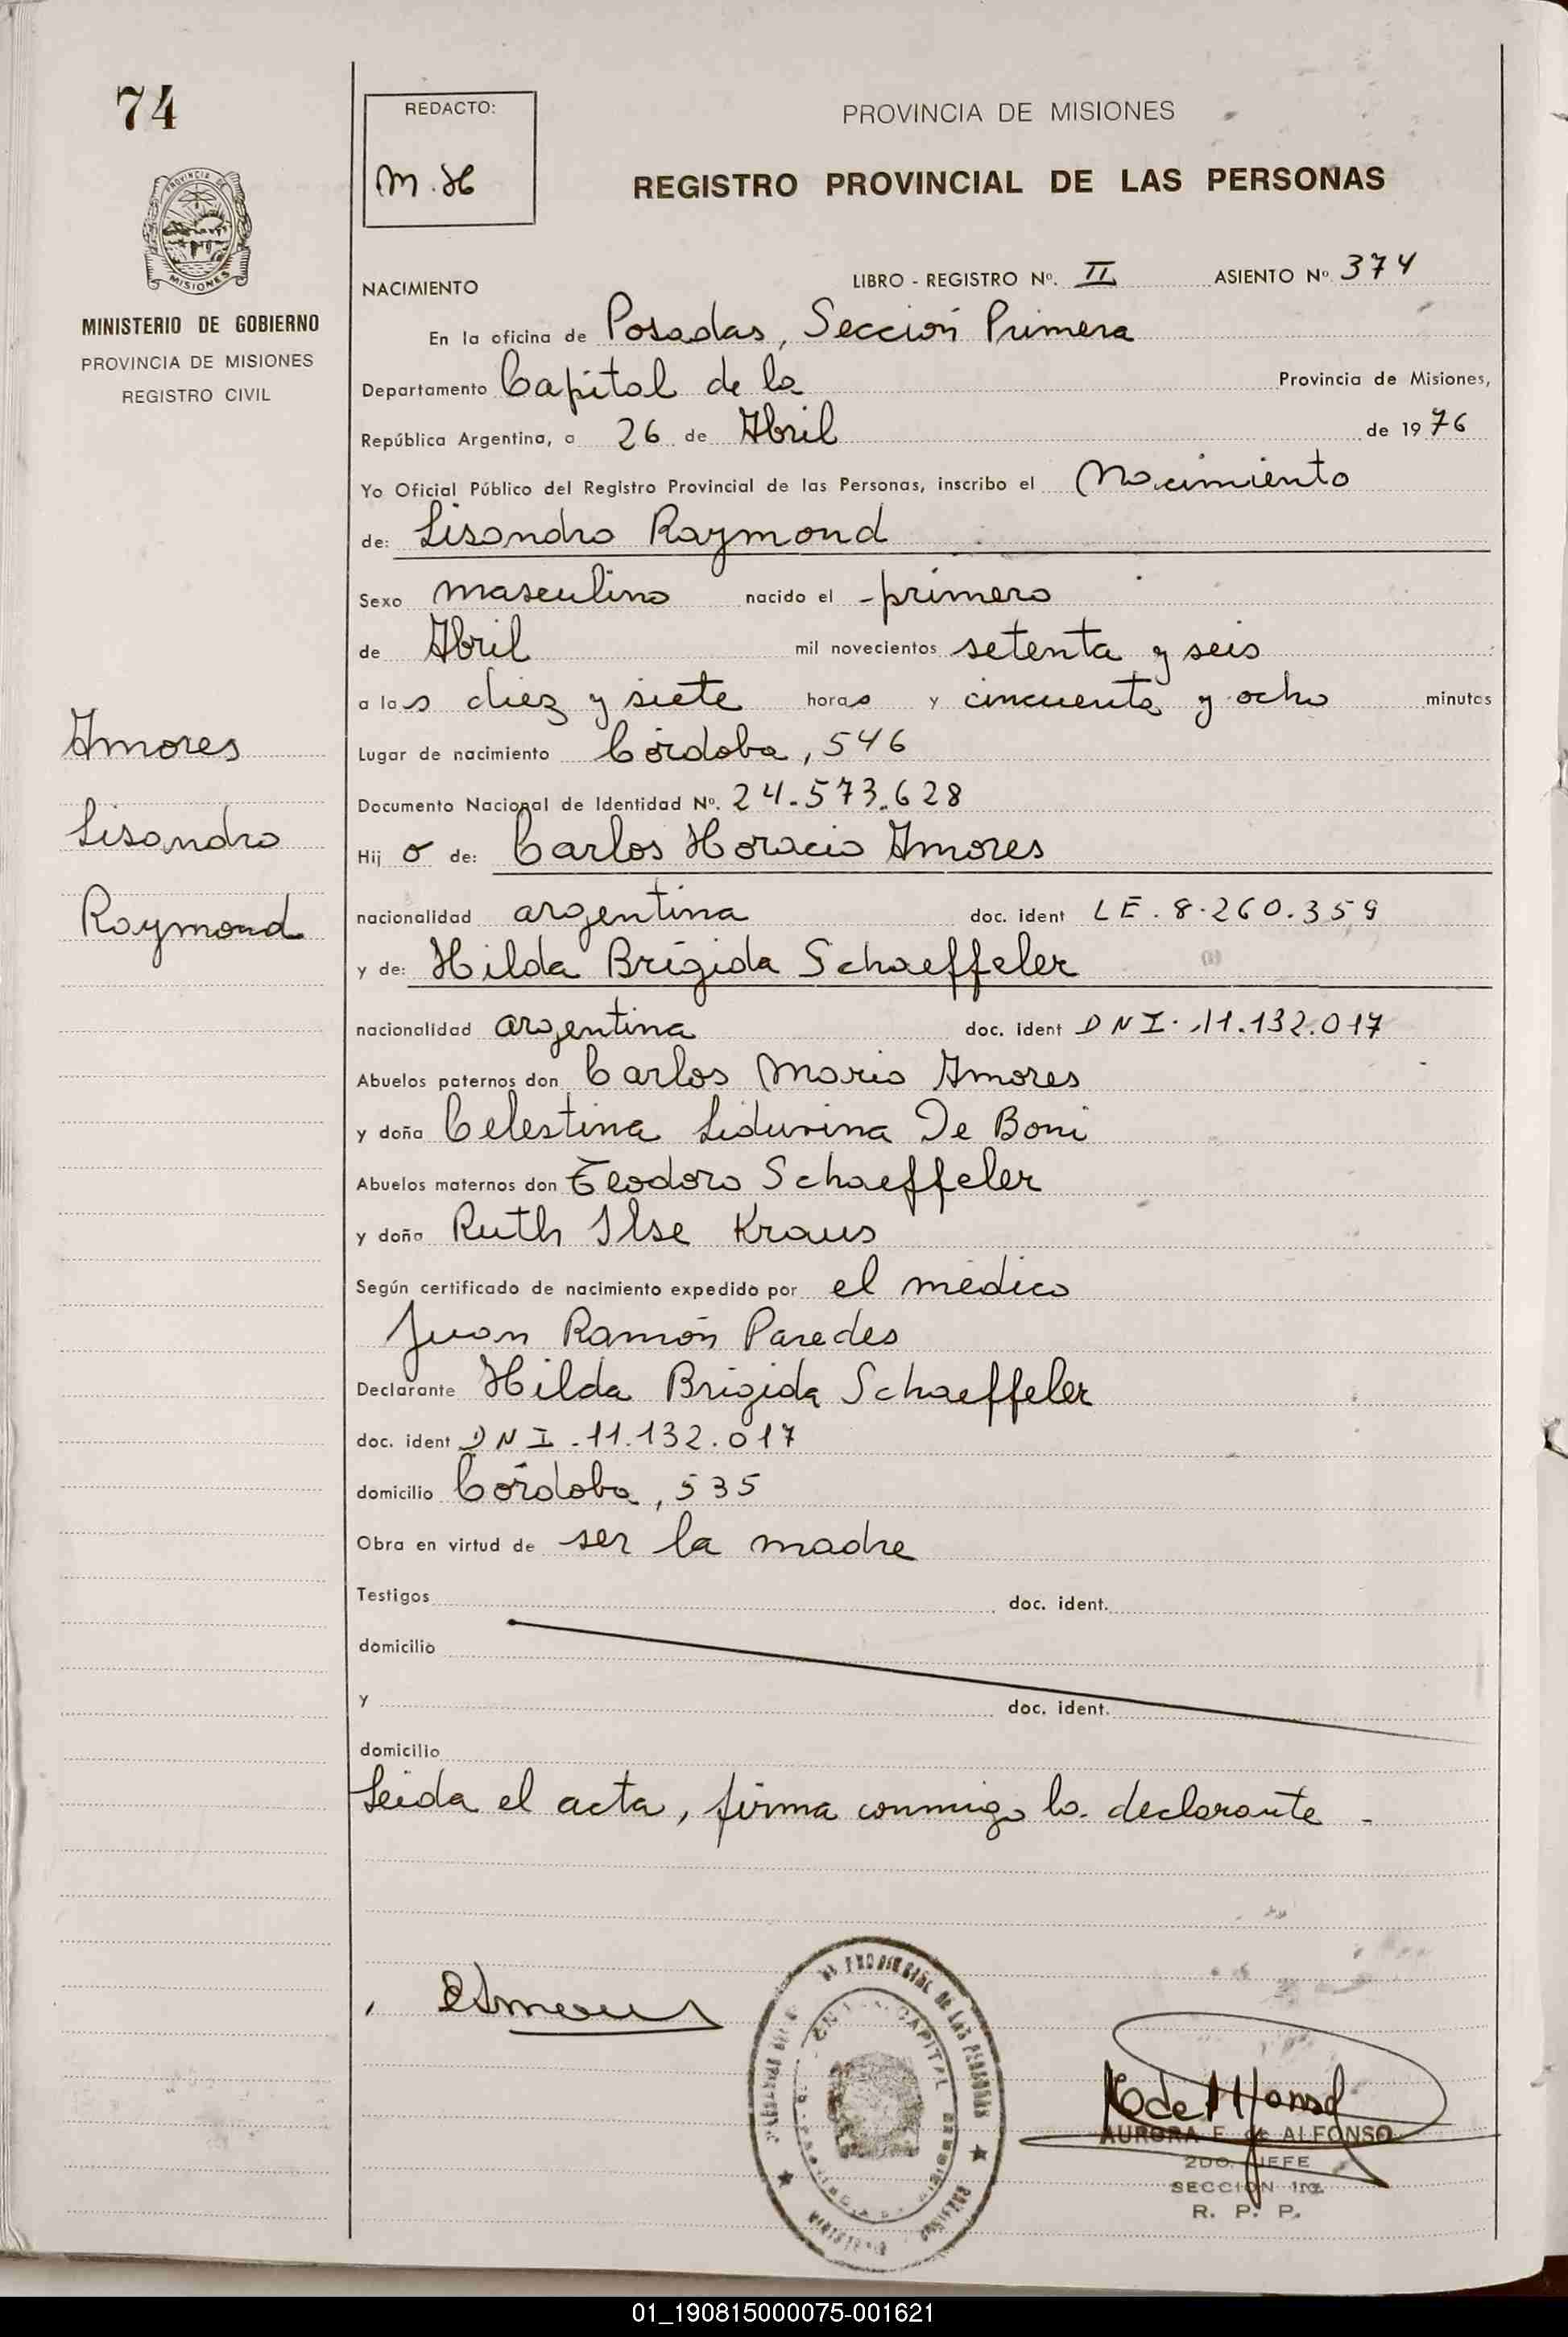 74
REDACTO:
M.H
PROVINCIA DE MISIONES
REGISTRO PROVINCIAL DE LAS PERSONAS
PROVINCIA DE
MISIONES
MINISTERIO DE GOBIERNO
PROVINCIA DE MISIONES
REGISTRO CIVIL
NACIMIENTO LIBRO - REGISTRO Nº. II ASIENTO Nº 374
En la oficina de Posadas, Sección Primera
Departamento Capital de la Provincia de Misiones,
República Argentina, a 26 de Abril de 1976
Yo Oficial Público del Registro Provincial de las Personas, inscribo el Nacimiento
de: Lisandro Raymond
Sexo masculino nacido el - primero
de Abril mil novecientos setenta y seis
a las diez y siete horas y cincuenta y ocho minutos
Lugar de nacimiento Córdoba, 546
Documento Nacional de Identidad Nº. 24.573.628
Hijo de: Carlos Horacio Amores
nacionalidad argentina doc. ident LE. 8.260.359
y de: Hilda Brígida Schaeffeler
nacionalidad argentina doc. ident DNI. 11.132.017
Abuelos paternos don Carlos Mario Amores
y doña Celestina Lidurina De Boni
Abuelos maternos don Teodoro Schaeffeler
y doña Ruth Ilse Kraus
Según certificado de nacimiento expedido por el médico
Juan Ramón Paredes
Declarante Hilda Brígida Schaeffeler
doc. ident DNI. 11.132.017
domicilio Córdoba, 535
Obra en virtud de ser la madre
Testigos doc. ident.
domicilio
y doc. ident.
domicilio
Leida el acta, firma conmigo la declarante -
Amores
Lisandro
Raymond
PROVINCIAL DE LAS PERSONAS
CAPITAL
AURORA F. de ALFONSO
2DO. JEFE
SECCION 1ra.
R. P. P.
01_190815000075-001621